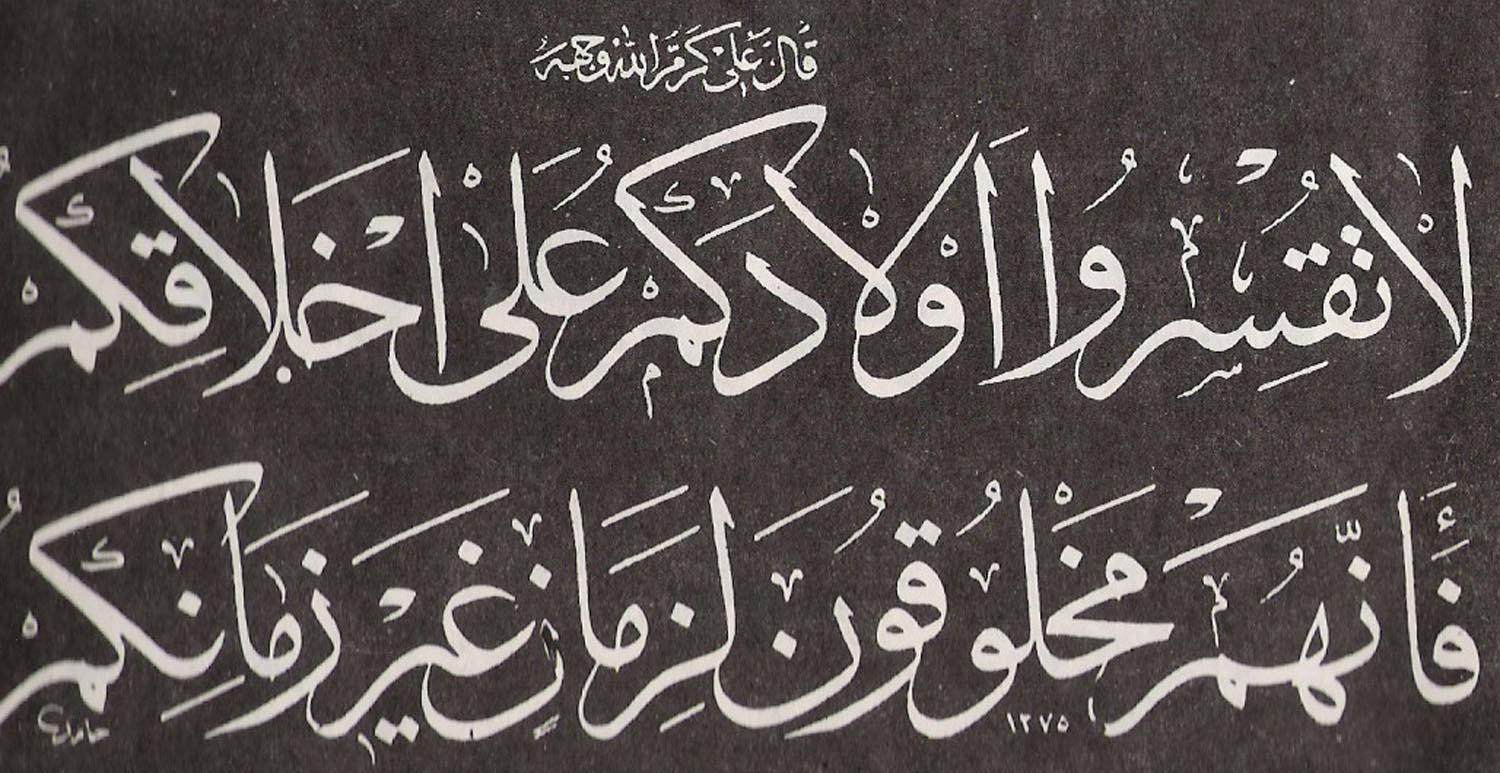 قَالَ عَلِي كَرَّمَ اللهُ وَجْهَهُ
لَا تُقْسِرُوا اَوْلَادَكُمْ عَلَى اَخْلَاقِكُمْ
فَأَنَّهُمْ مَخْلُوقُونَ لِزَمَانٍ غَيْرِ زَمَانِكُمْ
١٣٧٥
حامد